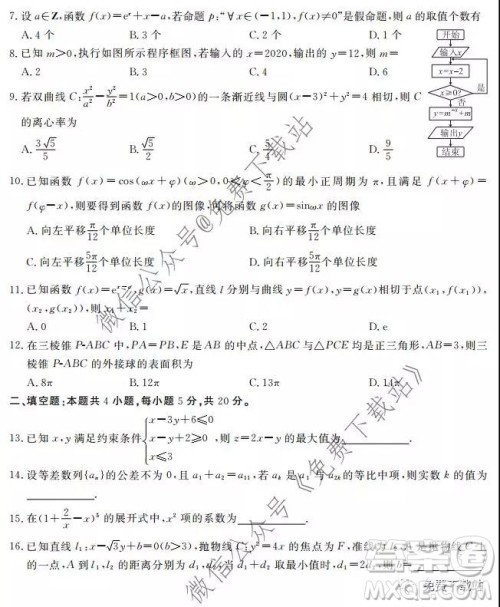 7.设a∈Z,函数f(x)=eˣ+x-a,若命题p:“∀x∈(-1,1),f(x)≠0”是假命题,则a的取值个数有
A.4个 B.3个 C.2个 D.1个
8.已知m>0,执行如图所示程序框图,若输入的x=2020,输出的y=12,则m=
A.2 B.3 C.4 D.6
开始
输入x
x=x-2
x≥0?
是
否
y=m⁻ˣ+m
输出y
结束
9.若双曲线C:x²/a²-y²/b²=1(a>0,b>0)的一条渐近线与圆(x-3)²+y²=4相切,则C
的离心率为
A.3√5/5 B.√5/2 C. D.9/5
10.已知函数f(x)=cos(ωx+φ)(ω>0,0<φ<π/2)的最小正周期为π,且满足f(x+φ)=
f(φ-x),则要得到函数f(x)的图像,可将函数g(x)=sinωx的图像
A.向左平移π/12个单位长度 B.向右平移π/12个单位长度
C.向左平移5π/12个单位长度 D.向右平移5π/12个单位长度
11.已知函数f(x)= g(x)=√x,直线l分别与曲线y=f(x),y=g(x)相切于点(x₁,f(x₁)),
(x₂,g(x₂)),则x₁+x₂=
A.0 B.1 C.2 D.e
12.在三棱锥P-ABC中,PA=PB,E是AB的中点,△ABC与△PCE均是正三角形,AB=3,则三
棱锥P-ABC的外接球的表面积为
A.8π B.12π C.13π D.14π
二、填空题:本题共4小题,每小题5分,共20分。
13.已知x,y满足约束条件{x-3y+6≤0
x-y+2≥0
x≤3
,则z=2x-y的最大值为
14.设等差数列{aₙ}的公差不为0,且a₁+a₂=a₁₁,若aₖ是a₁与a₂ₖ的等比中项,则实数k的值为
15.在(1+2/x-x)⁵的展开式中,x²项的系数为
16.已知直线l₁:x-√3y+b=0(b>3),抛物线C:y²=4x的焦点为F,准线为l₂,A是抛物线C上
的一点,A到l₁,l₂的距离分别为d₁,d₂,当d₁+d₂取最小值时,d₁=2d₂,则b=
微信公众号@免费下载站
微信公众号《免费下载站》
答案圈
免费下载站